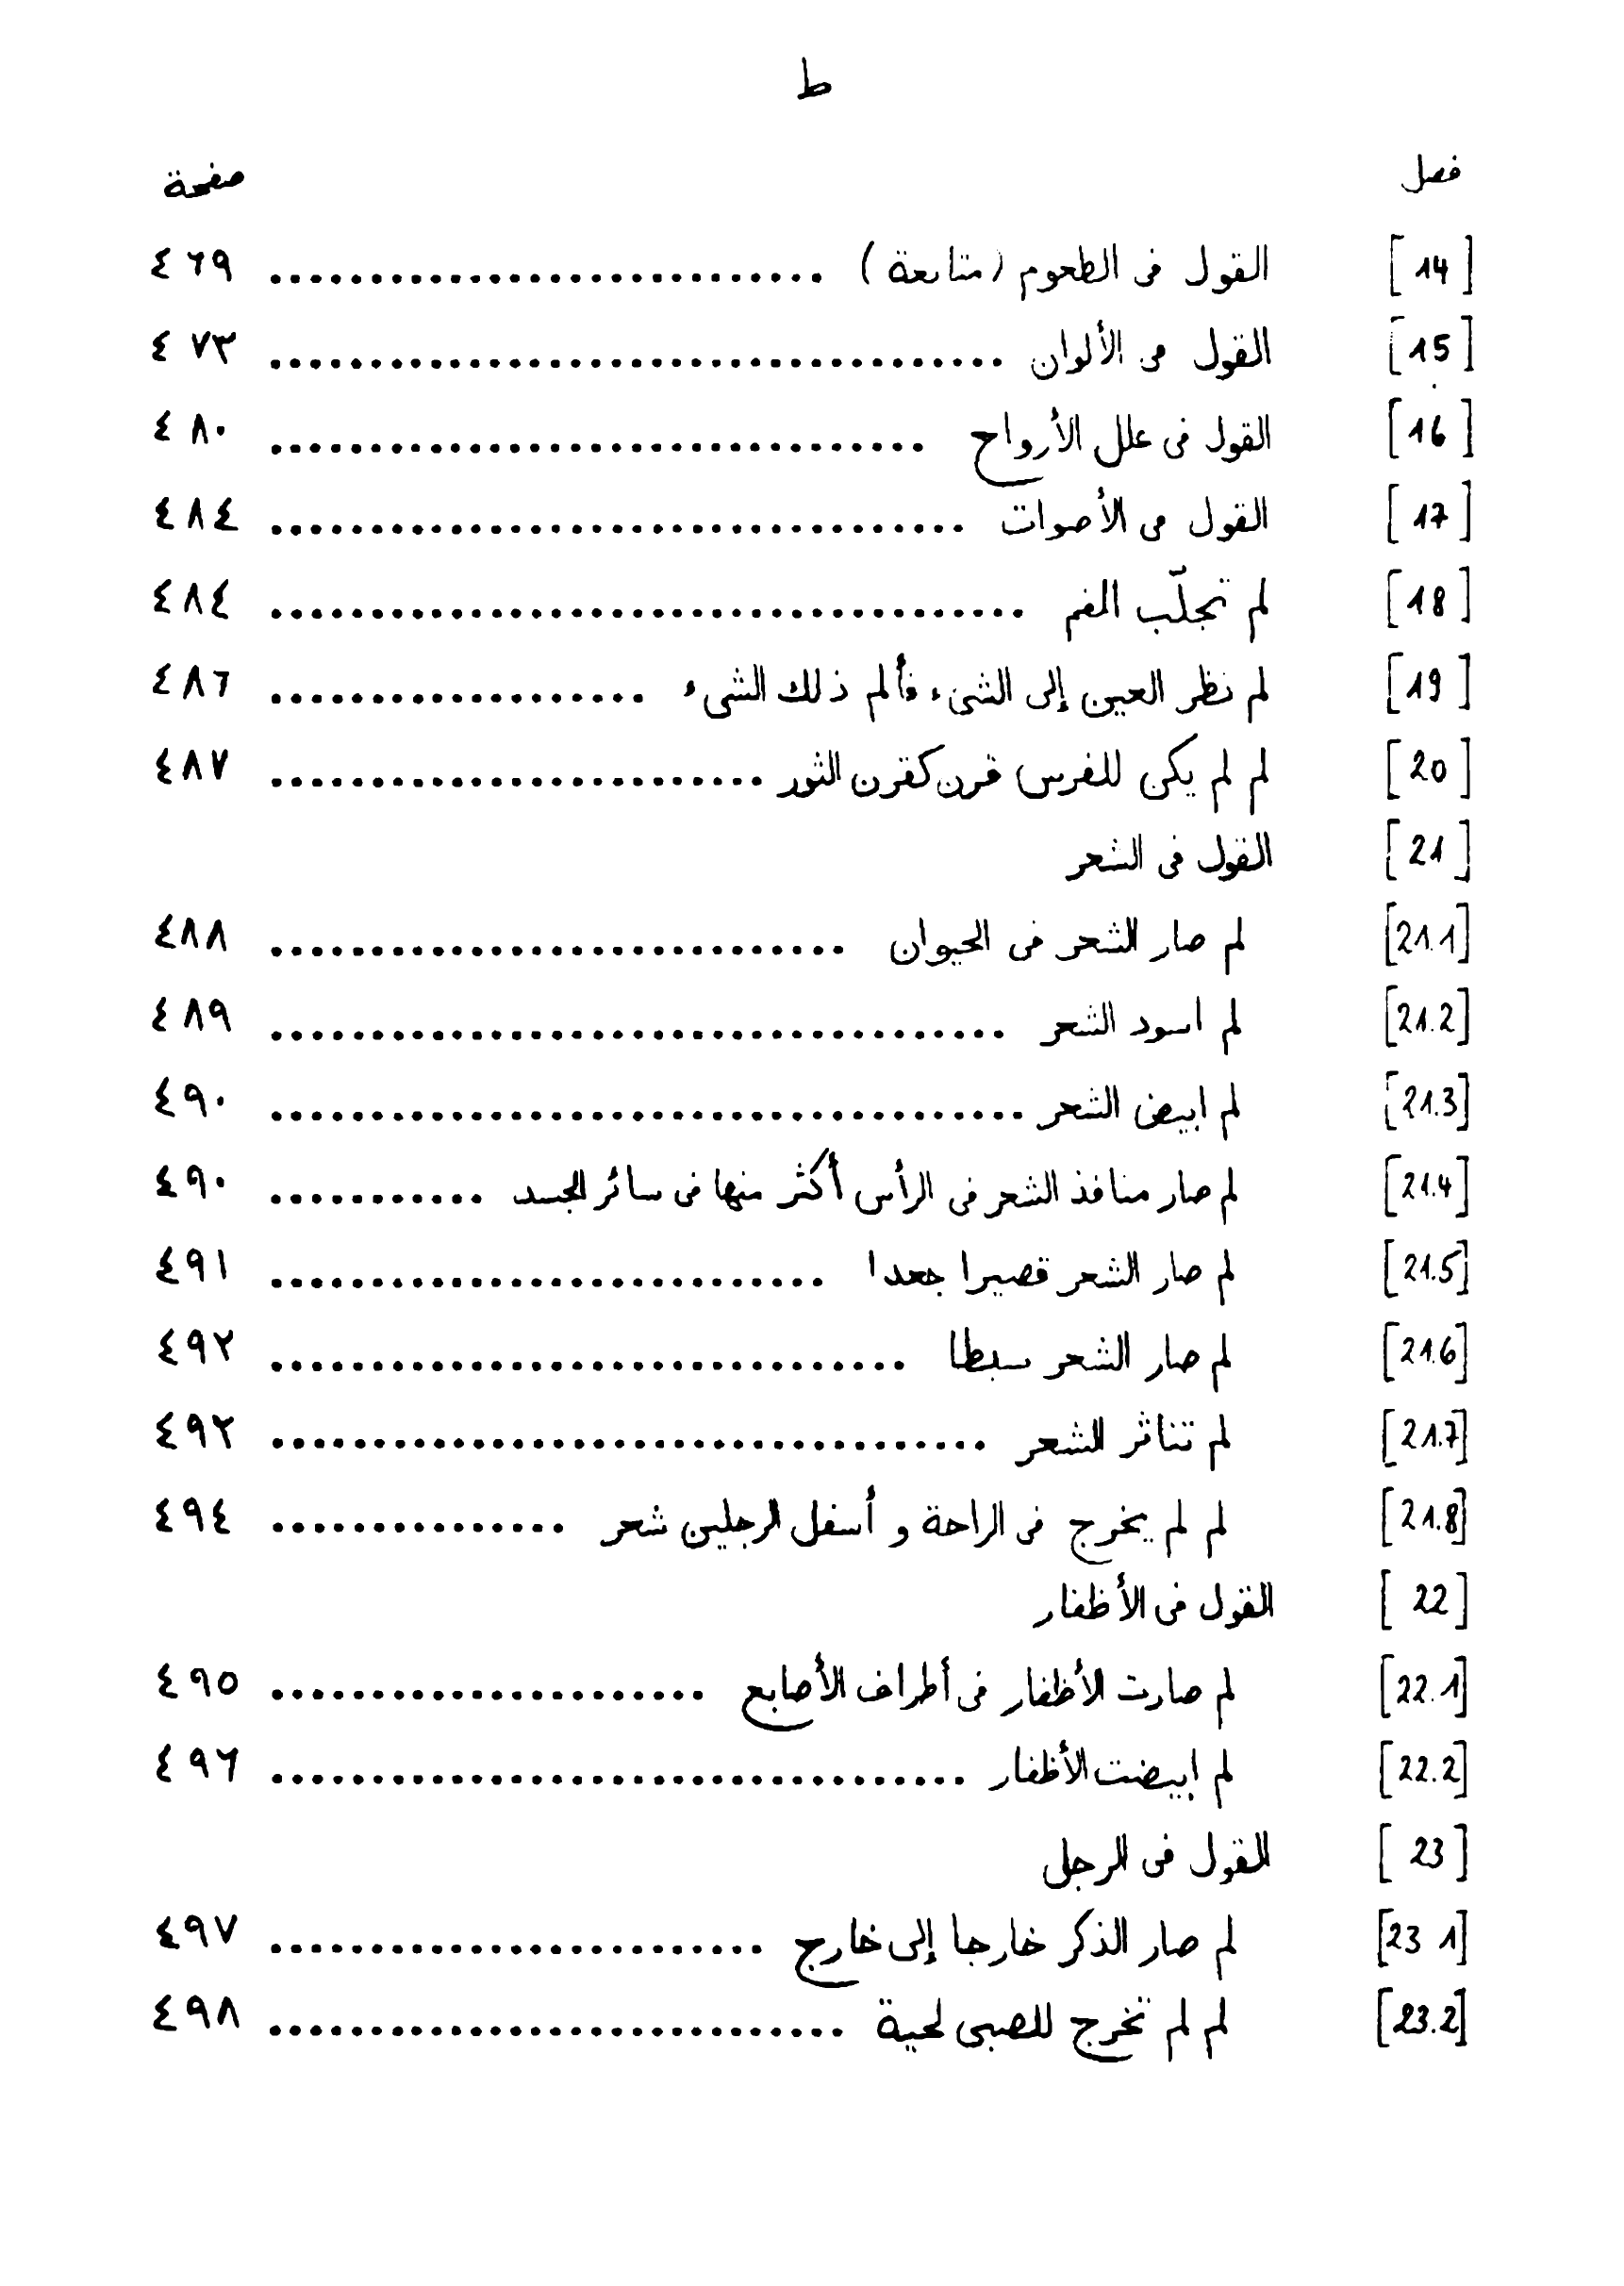 ط
فصل صفحة
[14] القول فى الطعوم (متابعة) .......... ٤٦٩
[15] القول فى الألوان .......... ٤٧٣
[16] القول فى علل الأرواح .......... ٤٨٠
[17] القول فى الأصوات .......... ٤٨٤
[18] لم تجلّب الفم .......... ٤٨٤
[19] لم نظر العين إلى الشىء فألم ذلك الشىء .......... ٤٨٦
[20] لم لم يكن للفرس قرن كقرن الثور .......... ٤٨٧
[21] القول فى الشعر
[21.1] لم صار الشعر فى الحيوان .......... ٤٨٨
[21.2] لم اسود الشعر .......... ٤٨٩
[21.3] لم ابيض الشعر .......... ٤٩٠
[21.4] لم صار منافذ الشعر فى الرأس أكثر منها فى سائر الجسد .......... ٤٩٠
[21.5] لم صار الشعر قصيرا جعدا .......... ٤٩١
[21.6] لم صار الشعر سبطا .......... ٤٩٢
[21.7] لم تناثر الشعر .......... ٤٩٢
[21.8] لم لم يخرج فى الراحة و أسفل الرجلين شعر .......... ٤٩٤
[22] القول فى الأظفار
[22.1] لم صارت الأظفار فى أطراف الأصابع .......... ٤٩٥
[22.2] لم ابيضت الأظفار .......... ٤٩٦
[23] القول فى الرجل
[23 1] لم صار الذكر خارجا إلى خارج .......... ٤٩٧
[23.2] لم لم تخرج للصبى لحية .......... ٤٩٨